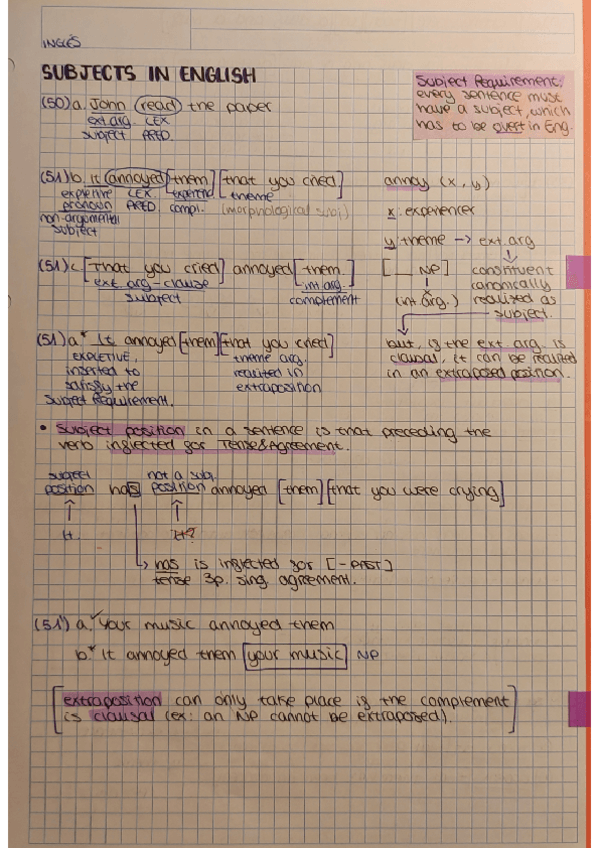 INGLÉS
SUBJECTS IN ENGLISH
Subject Requirement:
every sentence must
have a subject, which
has to be overt in Eng.
(50) a. John (read) the paper
ext. arg. LEX
subject PRED.
(51) b. it (annoyed) [them] [that you cried]
expletive LEX. experiencer theme
pronoun PRED. compl. (morphological subj)
non-argumental
subject
annoy (x, y)
x: experiencer
y theme -> ext. arg
(51) c. [That you cried] annoyed [them.]
ext. arg-clause int. arg.
subject complement
[__ NP]
(int arg.)
constituent
canonically
realized as
subject.
(51) a* It annoyed [them] [that you cried]
EXPLETIVE, theme arg.
inserted to realized in
satisfy the extraposition
Subject Requirement.
but, if the ext. arg. is
clausal, it can be realized
in an extraposed position.
• Subject position in a sentence is that preceding the
verb inflected for Tense & Agreement.
subject not a subj.
position has position annoyed [them] [that you were crying]
It It?
has is inflected for [-PAST]
tense 3p. sing agreement.
(51') a. ✓Your music annoyed them
b.* It annoyed them [your music] NP
[extraposition can only take place if the complement
is clausal (ex: an NP cannot be extraposed).]